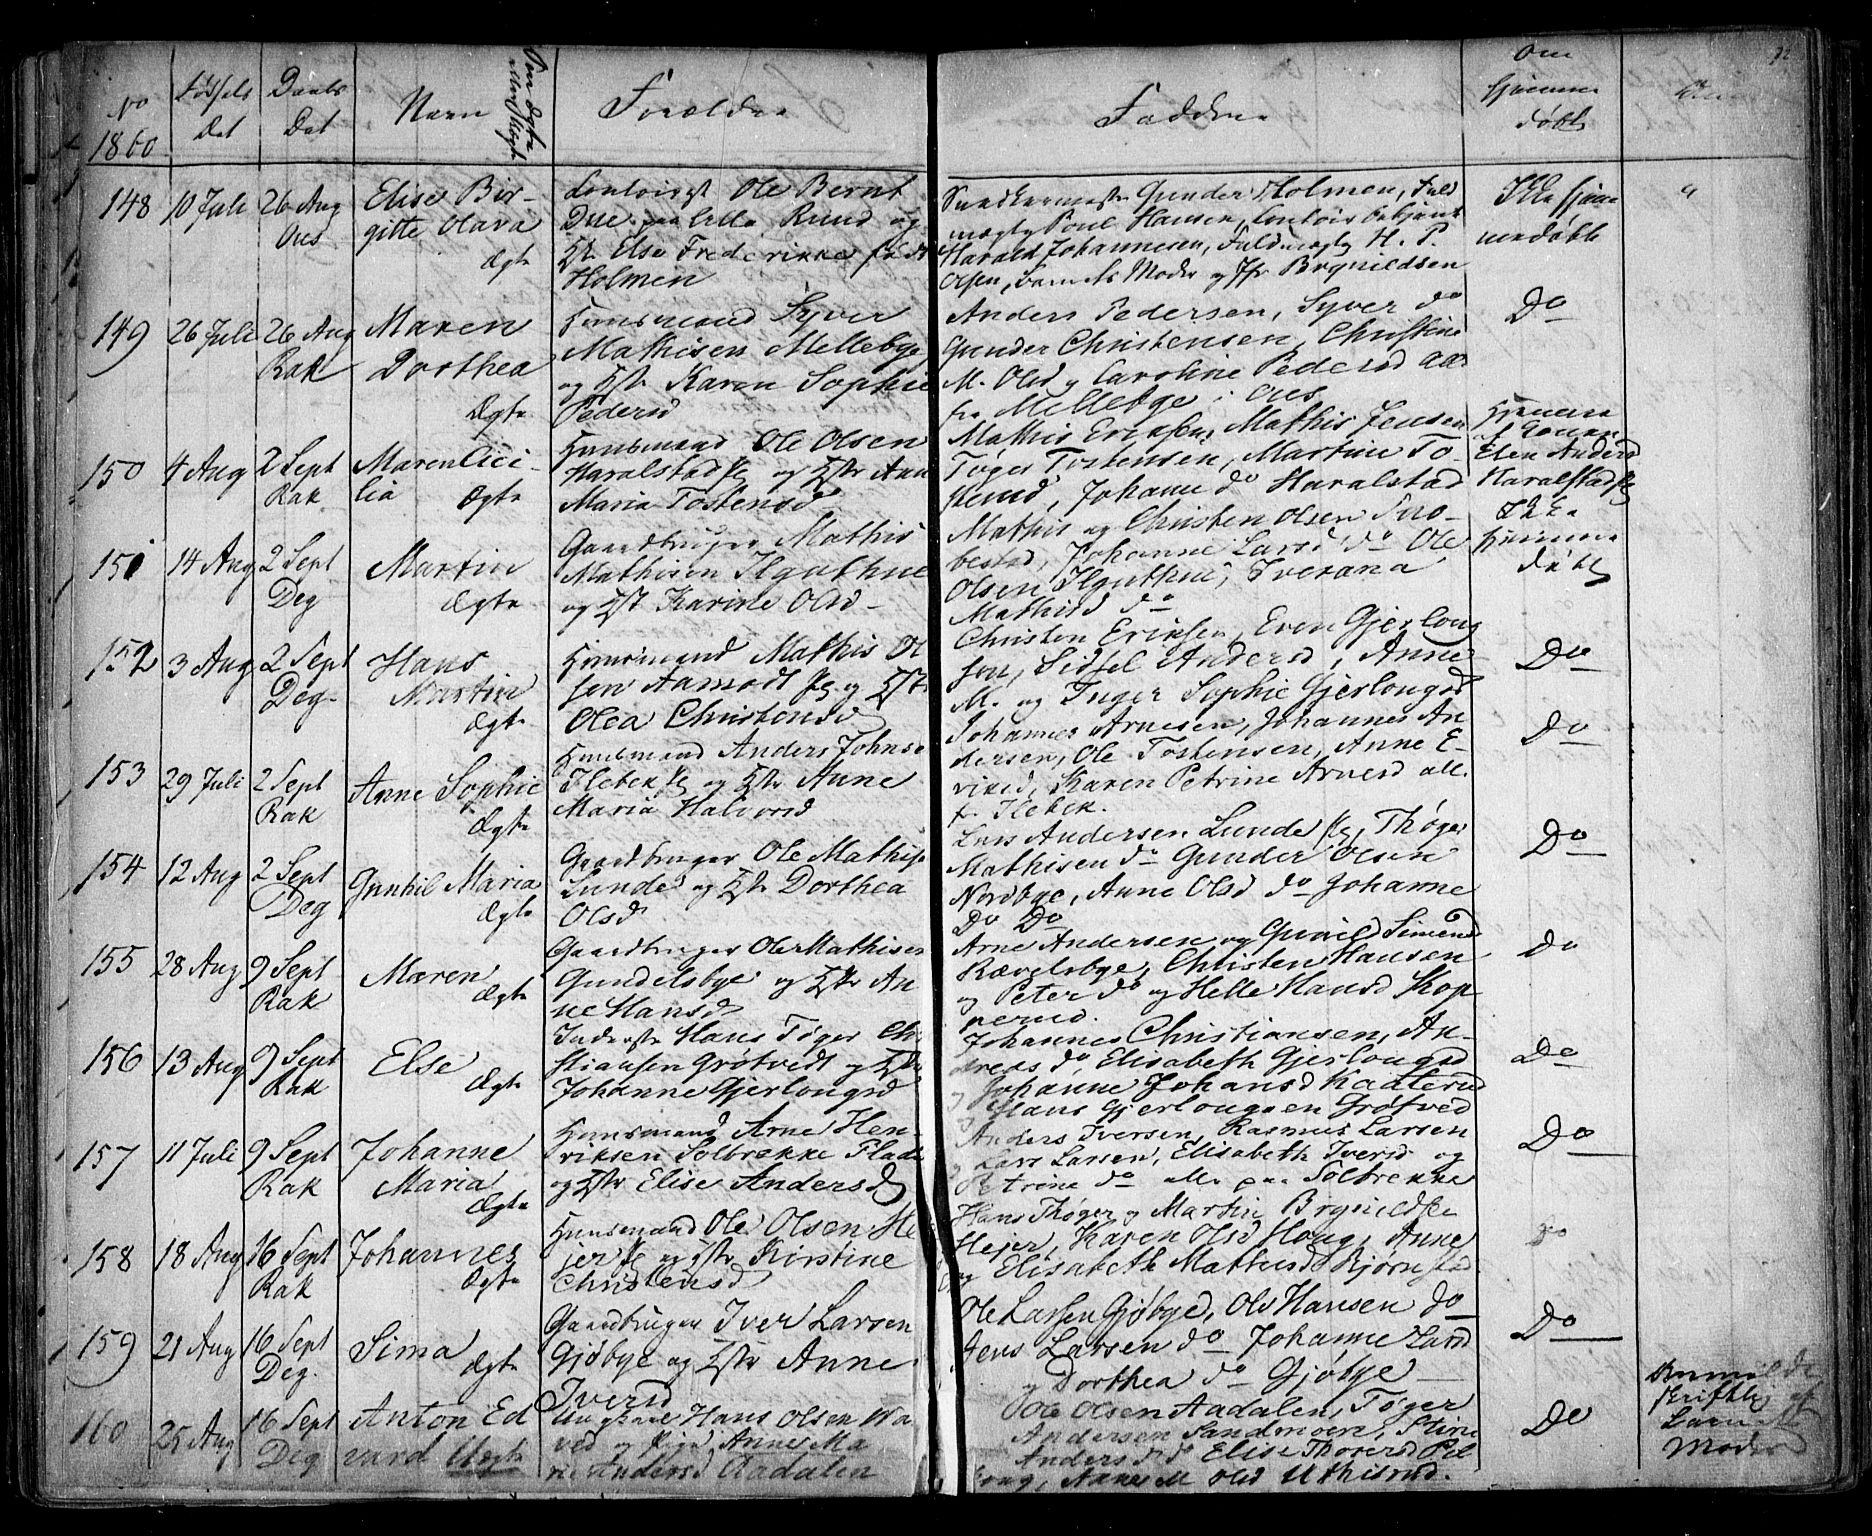 No
1860
Fødsels
Dat
Daabs
Dat
Navn
Om Ægte
eller Uægte
Forældre
Faddere
Om
hjemme
døbt
148
10 Juli
26 Aug
Aas
Elise Bir-
gitte Olava
Ægte
Ole Bernt
Due paa Lille Ruud og
Hstr Else Frederikke født
Holmen
Gunder Holmen, Fuld
mægtig Poul Hansen, Contoirbetjent
Harald Johannesen, Fuldmægtig H. P.
Olsen, Barnets Moder og Jfr Brynildsen
Ikke hjem
medøbt
"
149
26 Juli
26 Aug
Rak
Maren
Dorthea
Ægte
Huusmand Syver
Mathisen Mellebye
og Hstr Karen Sophie
Pedersd
Anders Pedersen, Syver do
Gunder Christensen, Christine
M. Olsd og Caroline Pedersd alle
fra Mellebye i Aas
Do
150
4 Aug
2 Sept
Rak
Maren Ceci-
lia Ægte
Huusmand Ole Olsen
Haralstad og Hstr Ann
Maria Tostensd
Mathis Eriksen, Mathis Jensen
Tøger Tostensen, Martine To-
stensd, Johanne do Haralstad
Hjemme
Elen Andersd
Haralstad
151
14 Aug
2 Sept
Deg
Martin
Ægte
Gaardbruger Mathis
Mathisen Ilguthue
og Hst Karine Olsd
Mathis og Christen Olsen Tro-
bestad, Johanne Larsd do Ole
Olsen Ilguthue, Iverana
Mathisd do
Ikke
hjemme
døbt
152
3 Aug
2 Sept
Deg
Hans
Martin
Ægte
Huusmand Mathis Ol
sen Aamodt og Hstr
Olea Christensd
Christen Eriksen, Even Gjerloug
sen, Sidsel Andersd, Anne
M. og Inger Sophie Gjerlougsd
Do
153
29 Juli
2 Sept
Rak
Anne Sophie
Ægte
Huusmand Anders Johns
Ilebek og Hstr Anne
Maria Halvorsd
Johannes Arnesen, Johannes An
dersen, Ole Tostensen, Anne E-
riksd, Karen Petrine Arnesd alle
fr Ilebek.
Do
154
12 Aug
2 Sept
Deg
Gunhil Maria
Ægte
Gaardbruger Ole Mathis
Lunde og Hstr Dorthea
Olsd
Lars Andersen Lunde, Thøger
Mathisen do Gunder Olsen
Nordbye, Anne Olsd do Johanne
Do Do
Do
155
28 Aug
9 Sept
Rak
Maren
Ægte
Gaardbruger Ole Mathisen
Gundelsbye og Hstr An
ne Hansd
Arne Andersen og Gunild Simensd
Rævelsbye, Christen Hansen
og Peter do og Helle Hansd Skop
perud.
do
156
13 Aug
9 Sept
Rak
Else
Ægte
Inderste Hans Tøger Chri
stiansen Grøtvedt og Hstr
Johanne Gjerlougsd
Johannes Christiansen, An-
dreas do, Elisabeth Gjerlougsd
og Johanne Johansd Kaaterud
Hans Gjerlougsen Grøtved
Do
157
11 Juli
9 Sept
Rak
Johanne
Maria
Ægte
Huusmand Arne Hen-
riksen Solbrekke Flade
og Hstr Elise Andersd
Anders Iversen, Rasmus Larsen
Lars Larsen, Elisabeth Iversd og
Petrine do alle paa Solbrekke
Do
158
18 Aug
16 Sept
Rak
Johannes
Ægte
Huusmand Ole Olsen He
jer og Hstr Kirstine
Christensd
Hans Thøger og Martin Brynildse
Hejer, Karen Olsd Houg, Anne
og Elisabeth Mathisd Bjørnstad
Do
159
21 Aug
16 Sept
Deg.
Sima
Ægte
Gaardbruger Iver Larsen
Gjøbye og Hstr Anne
Iversd
Ole Larsen Gjøbye, Ole Hansen do
Jens Larsen do Johanne Larsd
og Dorthea do Gjøbye
Do
160
25 Aug
16 Sept
Deg
Anton Ed
vard Uægte
Ungkarl Hans Olsen Wa
ved og Pige Anne Ma
rie Andersd Aadalen
Ole Olsen Aadalen, Tøger
Andersen Sandmoen, Stine
Andersd do Elise Thorersd Pel
Anne M Olsd Uthusrud.
Do
Anmeldt
skriftlig af
Barnets
Moder